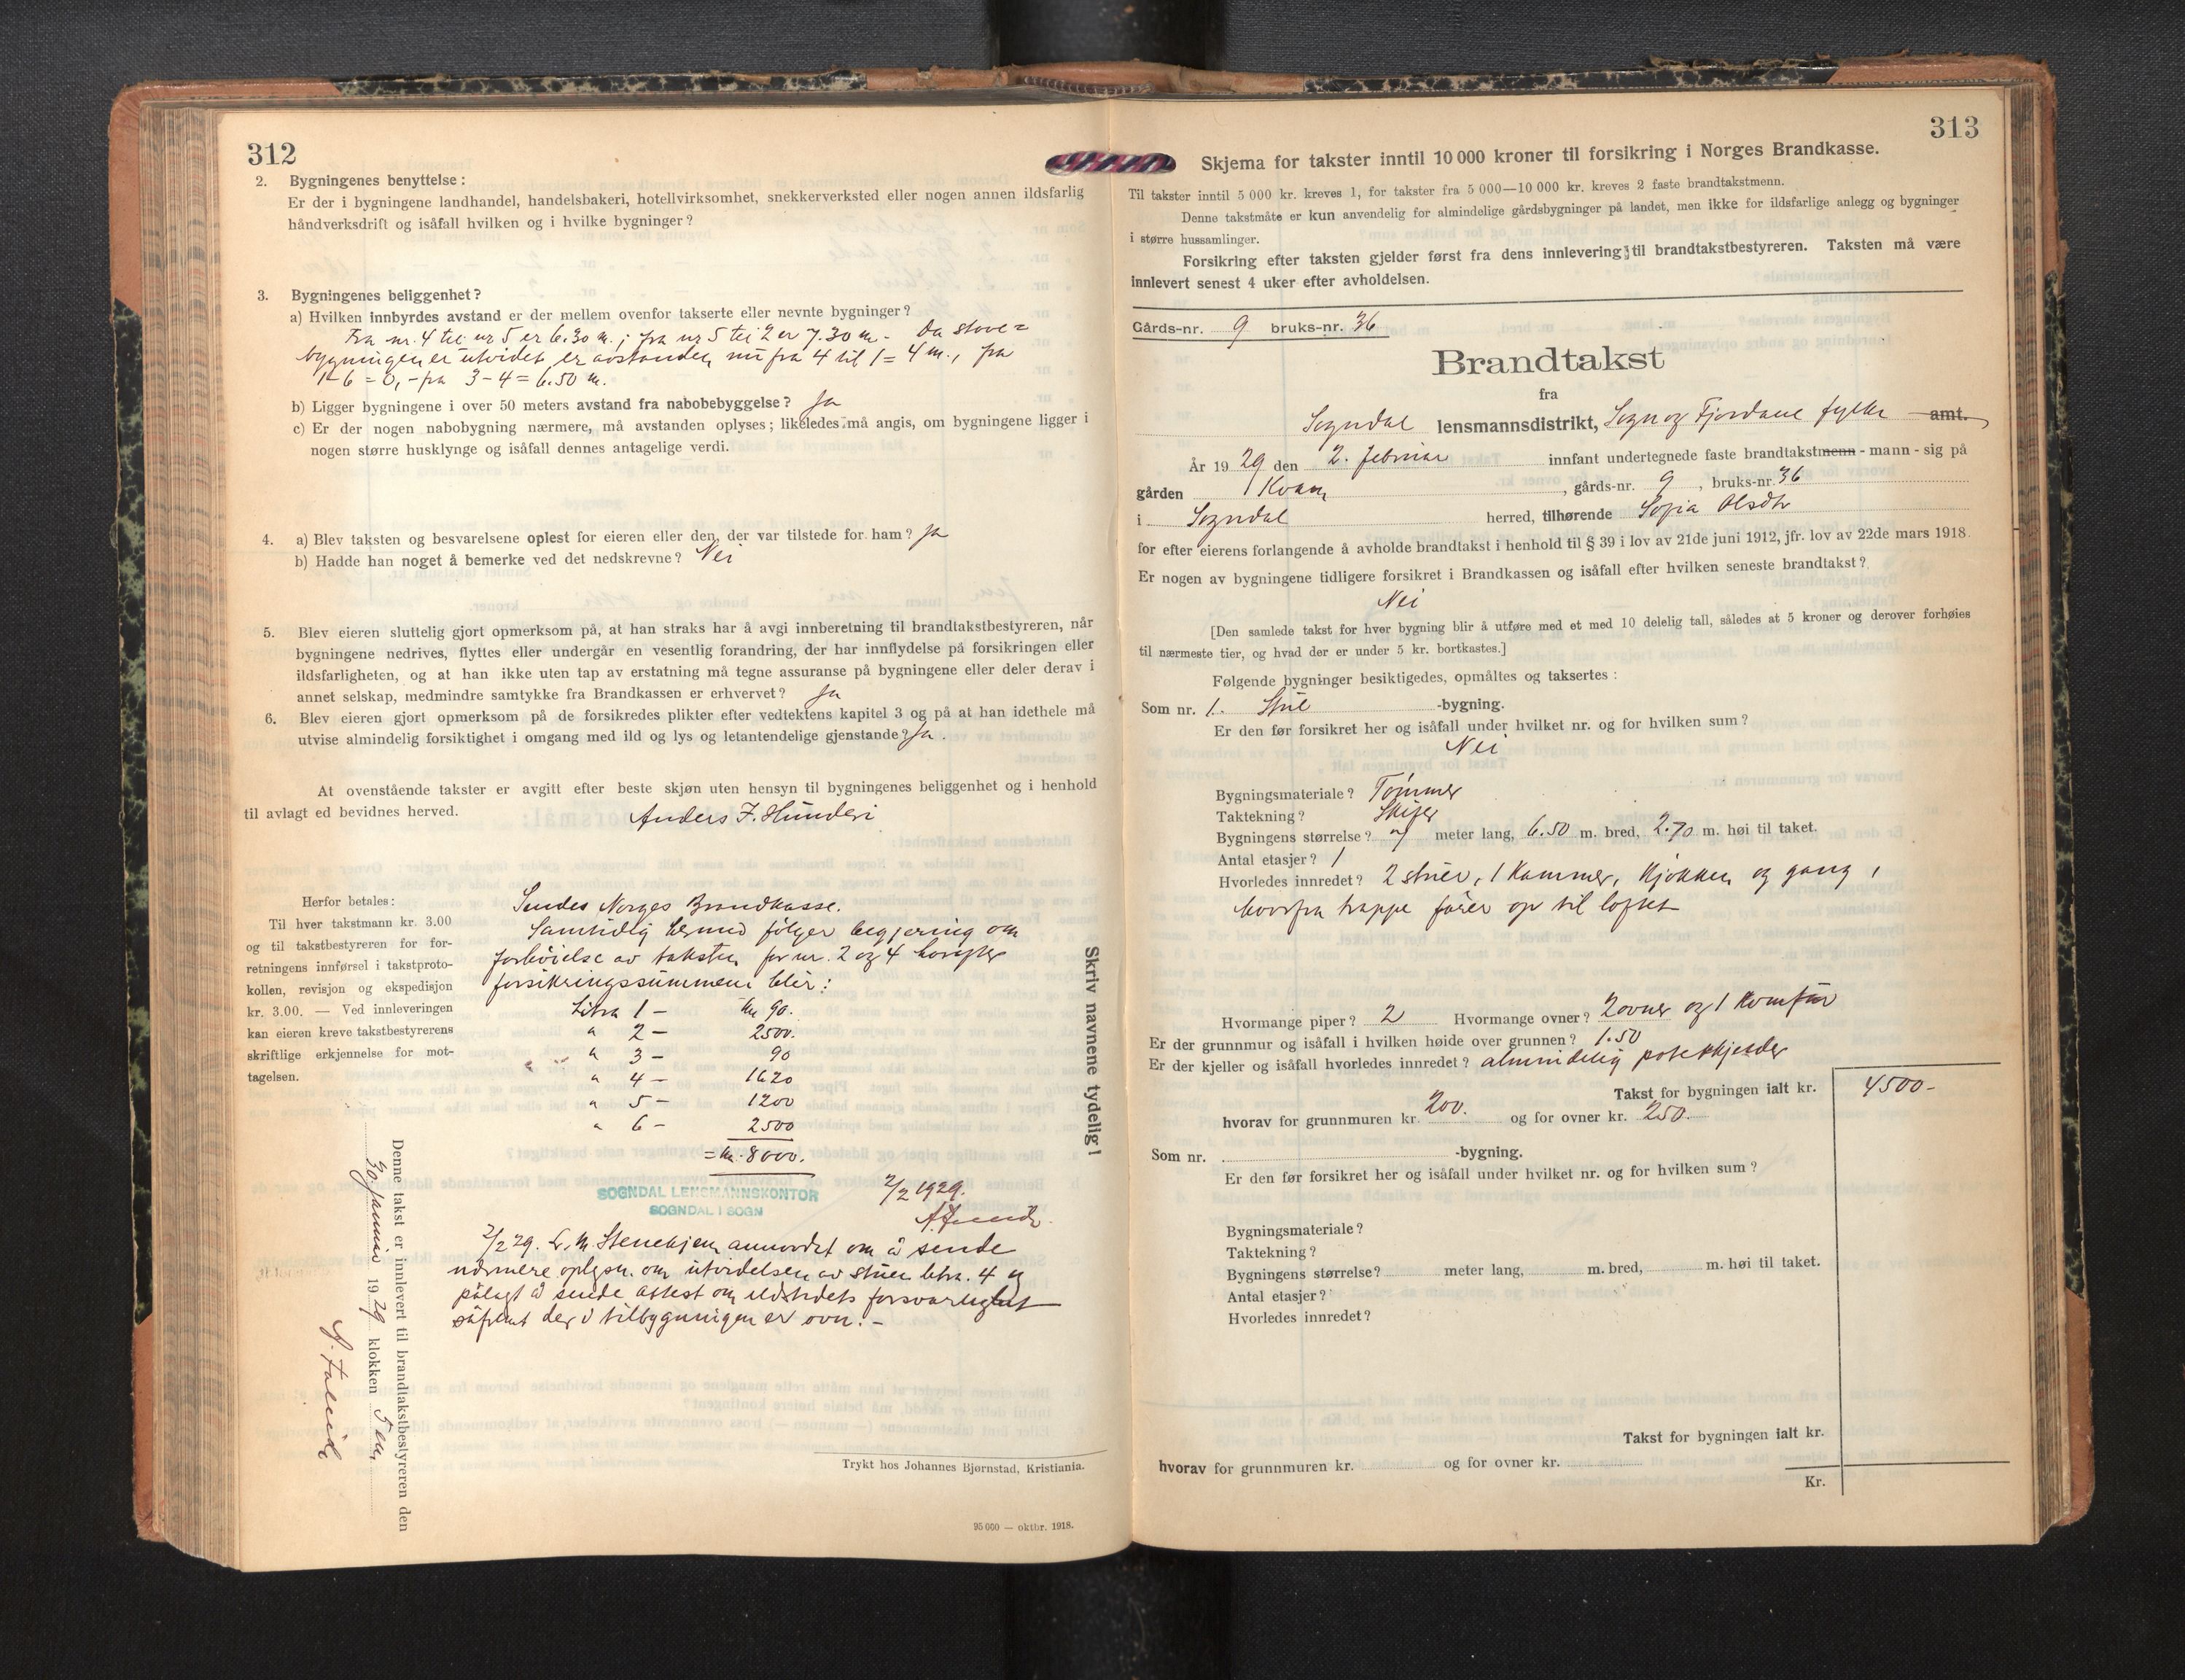 312
2. Bygningenes benyttelse:
Er der i bygningene landhandel, handelsbakeri, hotellvirksomhet, snekkerverksted eller nogen annen ildsfarlig
håndverksdrift og isåfall hvilken og i hvilke bygninger?
3. Bygningenes beliggenhet?
a) Hvilken innbyrdes avstand er der mellem ovenfor takserte eller nevnte bygninger?
Fra nr. 4 til nr 5 er 6.30 m.; fra nr 5 til 2 er 7.30 m - Da stove=
bygningen er utvidet er avstanden nu fra 4 til 1 = 4 m., fra
1-6 = 0, - fra 3-4 = 6.50 m.
b) Ligger bygningene i over 50 meters avstand fra nabobebyggelse? Ja
c) Er der nogen nabobygning nærmere, må avstanden oplyses; likeledes må angis, om bygningene ligger i
nogen større husklynge og isåfall dennes antagelige verdi.
4. a) Blev taksten og besvarelsene oplest for eieren eller den, der var tilstede for ham? Ja
b) Hadde han noget å bemerke ved det nedskrevne? Nei
5. Blev eieren sluttelig gjort opmerksom på, at han straks har å avgi innberetning til brandtakstbestyreren, når
bygningene nedrives, flyttes eller undergår en vesentlig forandring, der har innflydelse på forsikringen eller
ildsfarligheten, og at han ikke uten tap av erstatning må tegne assuranse på bygningene eller deler derav i
annet selskap, medmindre samtykke fra Brandkassen er erhvervet? Ja
6. Blev eieren gjort opmerksom på de forsikredes plikter efter vedtektens kapitel 3 og på at han idethele må
utvise almindelig forsiktighet i omgang med ild og lys og letantendelige gjenstande? Ja.
At ovenstående takster er avgitt efter beste skjøn uten hensyn til bygningenes beliggenhet og i henhold
til avlagt ed bevidnes herved. Anders J. Hunderi
Herfor betales:
Til hver takstmann kr. 3.00
og til takstbestyreren for for-
retningens innførsel i takstproto-
kollen, revisjon og ekspedisjon
kr. 3.00. — Ved innleveringen
kan eieren kreve takstbestyrerens
skriftlige erkjennelse for mot-
tagelsen.
Sendes Norges Brandkasse.
Samtidig hermed følger begjering om
forhøielse av taksten for nr. 2 og 4 hvorefter
forsikringssummene blir:
Litra 1 - kr 90.
" 2 - 2500.
" 3 - 90
" 4 - 1620
" 5 - 1200
" 6 - 2500
= kr. 8000.
SOGNDAL LENSMANNSKONTOR
SOGNDAL I SOGN
2/2 1929.
2/2 29. L.M. Stenehjem anmodet om å sende
nærmere oplysn. om utvidelsen av stuen litra. 4 og
pålagt å sende attest om ildstedets forsvarlighet
såfremt der i tilbygningen er ovn. -
Denne takst er innlevert til brandtakstbestyreren den
30 januar 1929 klokken 5 em
Skriv navnene tydelig!
Trykt hos Johannes Bjørnstad, Kristiania.
95 000 — oktbr. 1918.
313
Skjema for takster inntil 10 000 kroner til forsikring i Norges Brandkasse.
Til takster inntil 5 000 kr. kreves 1, for takster fra 5 000—10 000 kr. kreves 2 faste brandtakstmenn.
Denne takstmåte er kun anvendelig for almindelige gårdsbygninger på landet, men ikke for ildsfarlige anlegg og bygninger
i større hussamlinger.
Forsikring efter taksten gjelder først fra dens innlevering til brandtakstbestyreren. Taksten må være
innlevert senest 4 uker efter avholdelsen.
Gårds-nr. 9 bruks-nr. 36
Brandtakst
fra
Sogndal lensmannsdistrikt, Sogn og Fjordane fylke amt.
År 1929 den 2. februar innfant undertegnede faste brandtakstmenn - mann - sig på
gården Kvam, gårds-nr. 9, bruks-nr. 36
i Sogndal herred, tilhørende Sofia Olsdtr
for efter eierens forlangende å avholde brandtakst i henhold til § 39 i lov av 21de juni 1912, jfr. lov av 22de mars 1918.
Er nogen av bygningene tidligere forsikret i Brandkassen og isåfall efter hvilken seneste brandtakst?
Nei
[Den samlede takst for hver bygning blir å utføre med et med 10 delelig tall, således at 5 kroner og derover forhøies
til nærmeste tier, og hvad der er under 5 kr. bortkastes.]
Følgende bygninger besiktigedes, opmåltes og taksertes:
Som nr. 1. Stue -bygning.
Er den før forsikret her og isåfall under hvilket nr. og for hvilken sum?
Nei
Bygningsmateriale? Tømmer
Taktekning? Skifer
Bygningens størrelse? meter lang, 6.50 m. bred, 2.70 m. høi til taket.
Antal etasjer? 1
Hvorledes innredet? 2 stuer, 1 Kammer, Kjøkken og gang,
hvorfra trappe fører op til loftet
Hvormange piper? 2 Hvormange ovner? 2 ovner og 1 Komfur
Er der grunnmur og isåfall i hvilken høide over grunnen? 1.50
Er der kjeller og isåfall hvorledes innredet? almindelig potetkjelder
Takst for bygningen ialt kr. 4500-
hvorav for grunnmuren kr. 200. og for ovner kr. 250.
Som nr. -bygning.
Er den før forsikret her og isåfall under hvilket nr. og for hvilken sum?
Bygningsmateriale?
Taktekning?
Bygningens størrelse? meter lang, m. bred, m. høi til taket.
Antal etasjer?
Hvorledes innredet?
Takst for bygningen ialt kr.
hvorav for grunnmuren kr. og for ovner kr.
Kr.